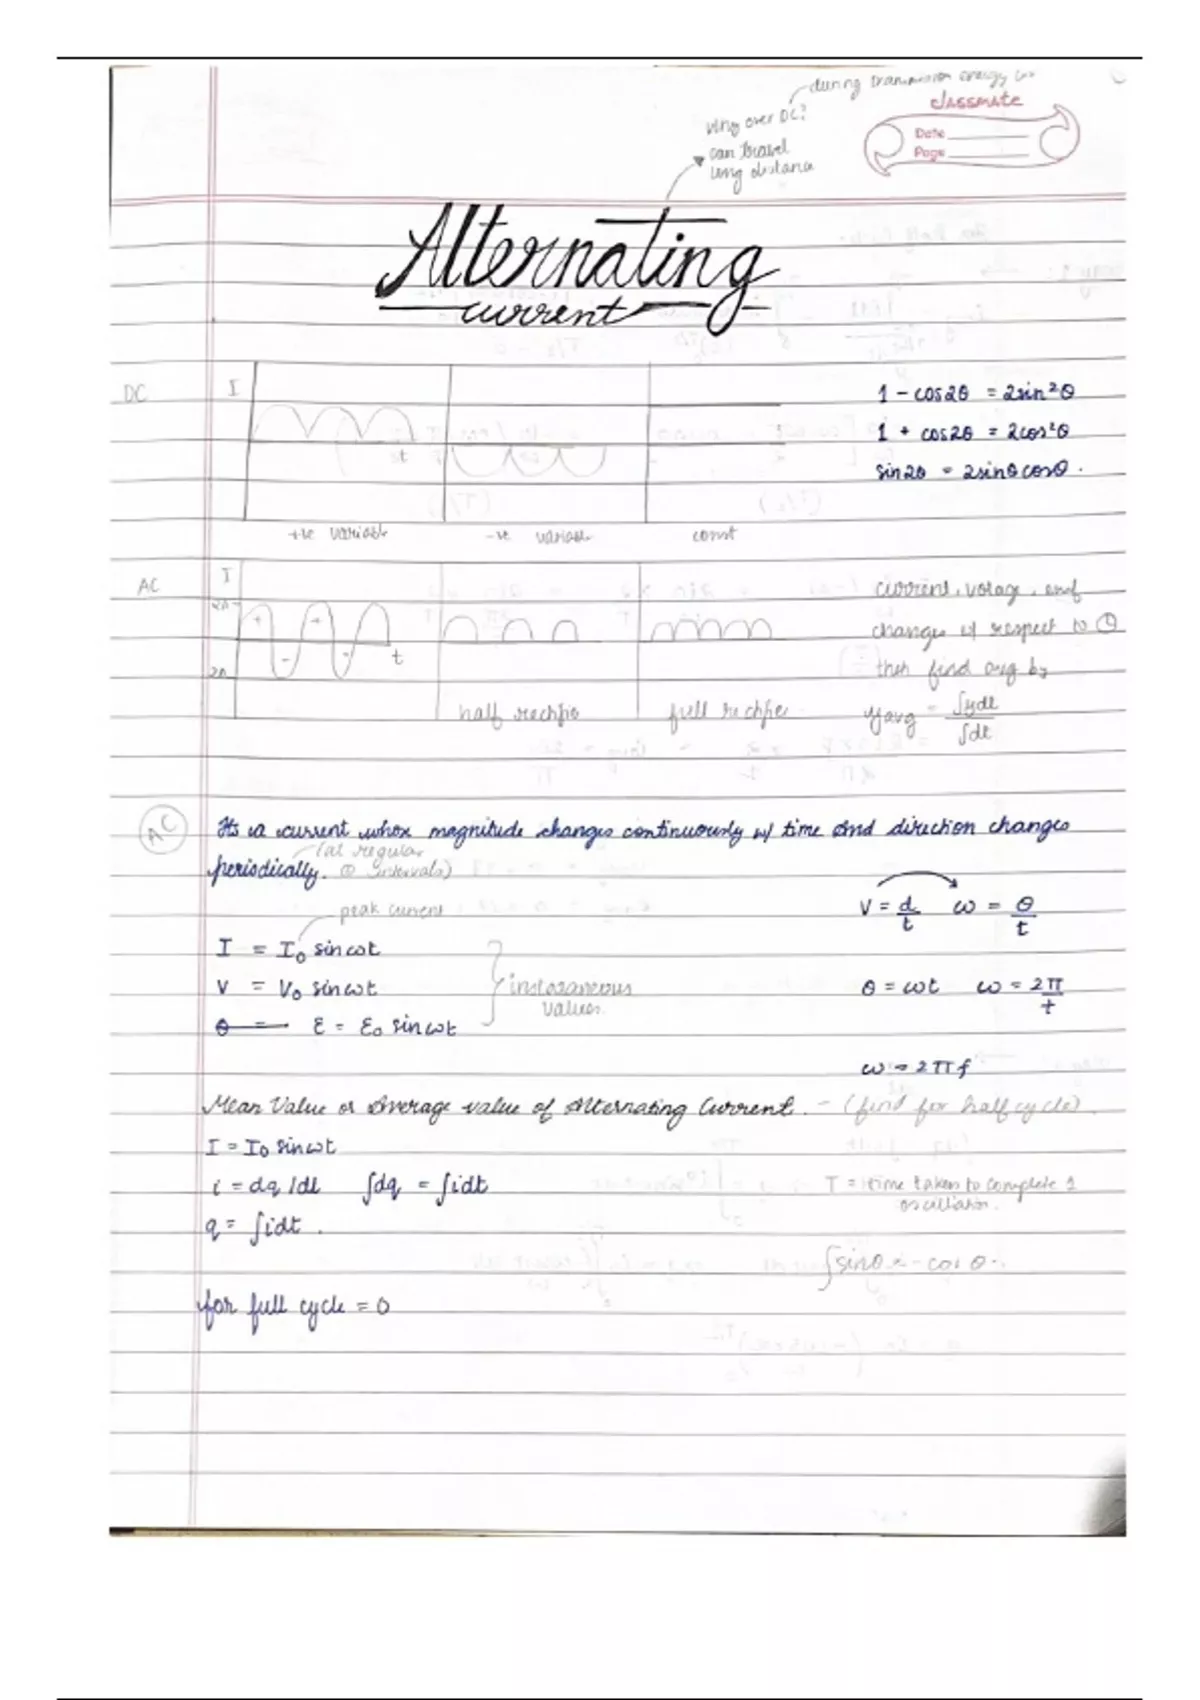 during transmission energy
classmate
Date
Page
why over DC?
can travel
long distance
Alternating
current
DC I
t
+ve variable -ve variable const
1 - cos2θ = 2sin²θ
1 + cos2θ = 2cos²θ
sin2θ = 2sinθcosθ.
AC I
2A
+ + - -
t
2A
half rechfie full rechfie
current, votage, emf
changes w/ respect to
then find avg by
yavg = ∫ydt / ∫dt
AC
Its a current whose magnitude changes continuously w/ time and direction changes
(at regular
periodically. intervals)
peak current
I = I₀ sinωt
V = V₀ sinωt
θ = ε = ε₀ sinωt
instantaneous
values.
V = d/t ω = θ/t
θ = ωt ω = 2π/t
ω = 2πf
Mean Value or Average value of Alternating Current. - (find for half cycle).
I = I₀ sinωt
i = dq/dt ∫dq = ∫idt
T = time taken to complete 1
oscillation.
q = ∫idt.
∫sinθ = -cosθ.
for full cycle = 0